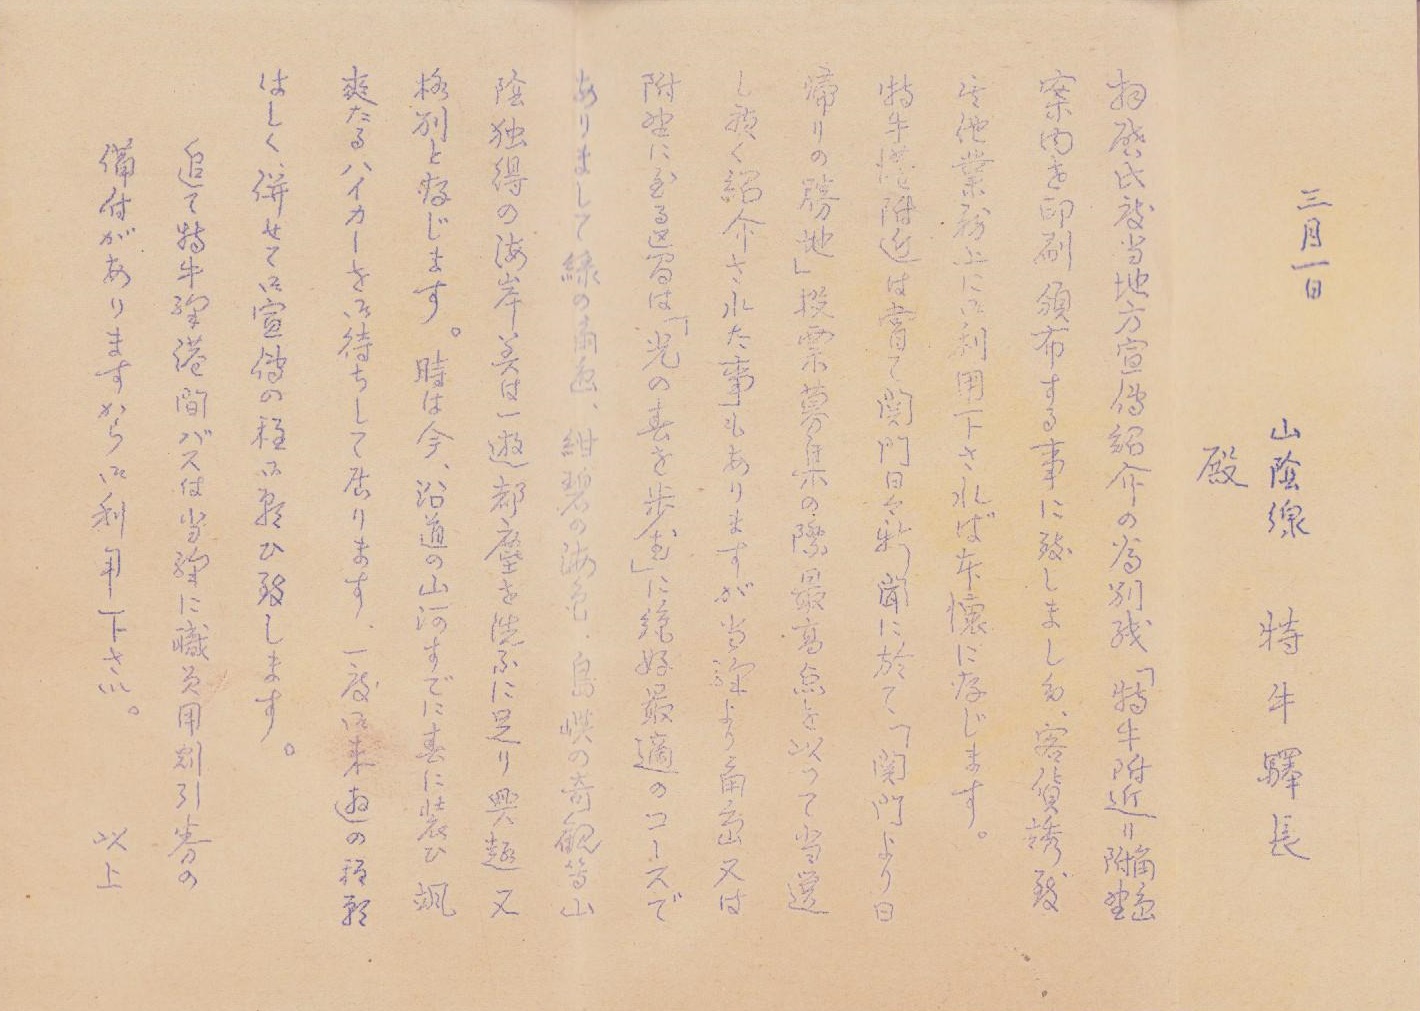 三月一日
山陰線　特牛驛長
殿
拝啓 当地方宣傳紹介の為別残「特牛附近〃角島附野
案内を印刷頒布する事に致しました、客貨誘致
其他業務上に御利用下さればば本懐に存じます。
特牛港附近は嘗て関門日々新聞に於て、「関門より日
帰りの勝地」投票募集の際最高点を以つて当選
し 紹介された事もありますが当驛より角島又は
附野に至る 「光の春を歩む」に絶好最適のコースで
ありまして緑の 、紺碧の海色、島 の奇観等山
陰独得の海岸美は一遊都塵を洗ふに足り興趣又
格別と存じます。時は今、沿道の山河すでに春に装ひ颯
爽たるハイカーを御待ちして居ります、一度御来遊の程願
はしく併せて御宣傳の程御願ひ致します。
追て特牛驛港間バスは当驛に職員用割引券の
備付がありますから御利用下さい。　以上